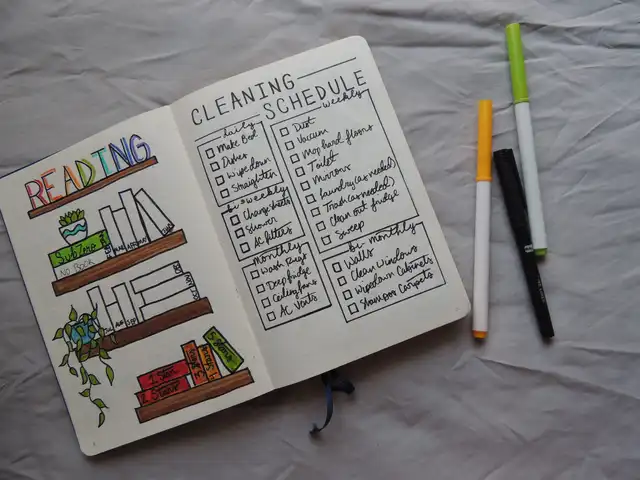 READING
Sub Zero
NO BOOK
1 Star
2 Star
CLEANING
SCHEDULE
daily
Make Bed
Dishes
Wipe down
Straighten
bi-weekly
Change Sheets
Shower
AC filters
monthly
Wash Rugs
Deep fridge
Ceiling fans
AC Vents
weekly
Dust
Vacuum
Mop hard floors
Toilet
Mirrors
laundry (as needed)
Trash (as needed)
Clean out fridge
Sweep
bi-monthly
Walls
Clean Windows
Wipedown Cabinets
Shampoo Carpets